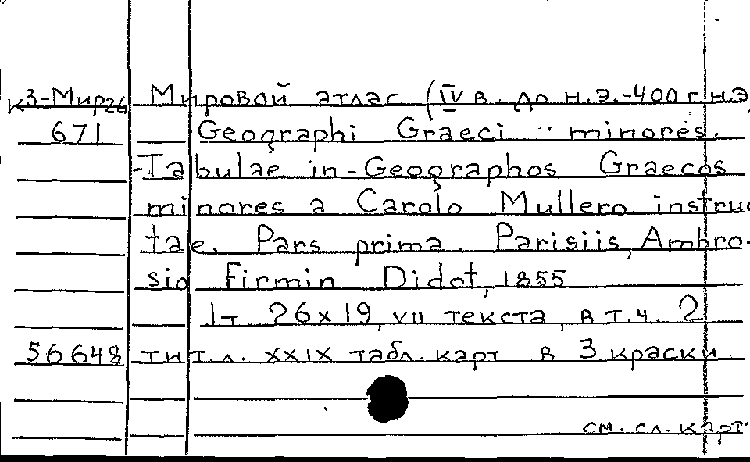 к3-Мир26 Мировой атлас (IV в. до н.э.-400 г н.э
671 Geographi Graeci minores.
Tabulae in-Geographos Graecos
minores a Carolo Mullero instruc
tae. Pars prima. Parisiis, Ambro-
sio Firmin Didot, 1855
1т 26x19, VII текста, в т.ч. 2
56648 тит.л. XXIX табл. карт в 3 краски
см. сл. карт